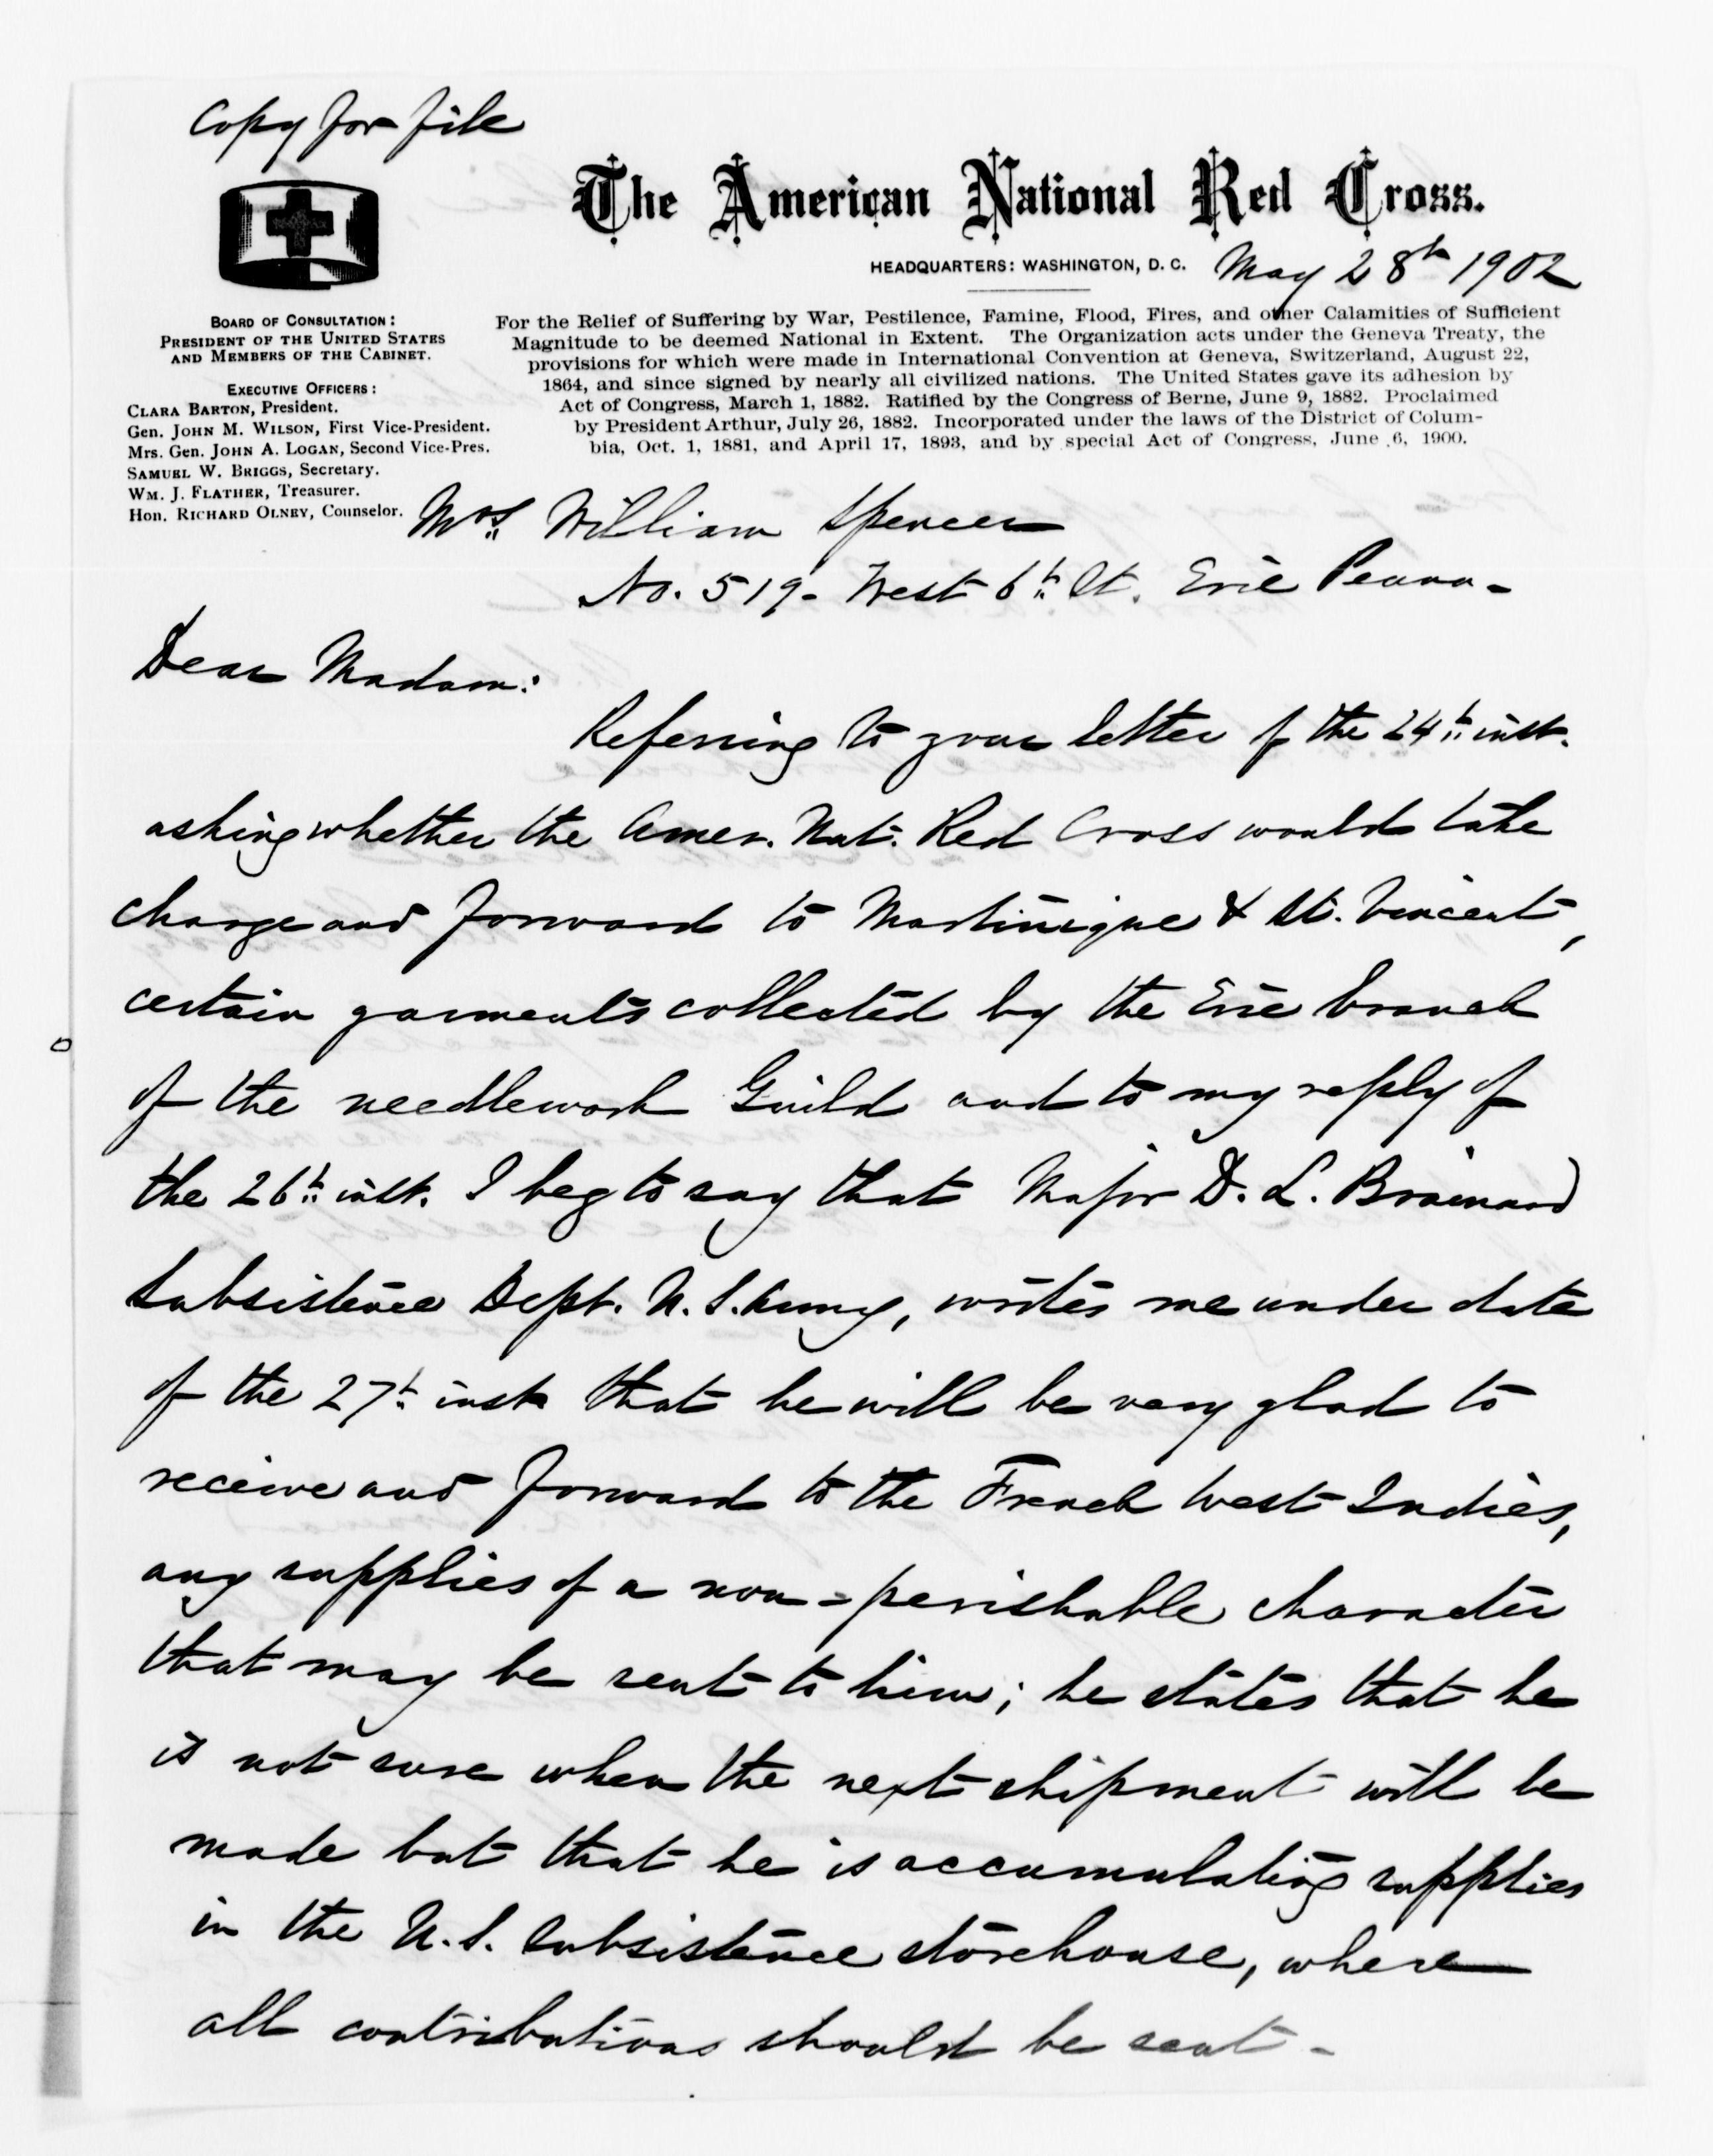 Copy for file
The American National Red Cross.
HEADQUARTERS: WASHINGTON, D. C. May 28th 1902
BOARD OF CONSULTATION:
PRESIDENT OF THE UNITED STATES
AND MEMBERS OF THE CABINET.
EXECUTIVE OFFICERS:
CLARA BARTON, President.
Gen. JOHN M. WILSON, First Vice-President.
Mrs. Gen. JOHN A. LOGAN, Second Vice-Pres.
SAMUEL W. BRIGGS, Secretary.
WM. J. FLATHER, Treasurer.
Hon. RICHARD OLNEY, Counselor.
For the Relief of Suffering by War, Pestilence, Famine, Flood, Fires, and other Calamities of Sufficient
Magnitude to be deemed National in Extent. The Organization acts under the Geneva Treaty, the
provisions for which were made in International Convention at Geneva, Switzerland, August 22,
1864, and since signed by nearly all civilized nations. The United States gave its adhesion by
Act of Congress, March 1, 1882. Ratified by the Congress of Berne, June 9, 1882. Proclaimed
by President Arthur, July 26, 1882. Incorporated under the laws of the District of Colum-
bia, Oct. 1, 1881, and April 17, 1893, and by special Act of Congress, June 6, 1900.
Mrs. William Spencer
No. 519- West 6th St. Erie Penna-
Dear Madam:
Referring to your letter of the 24th inst.
asking whether the Amer. Nat. Red Cross would take
charge and forward to Martinique & St. Vincent,
certain garments collected by the Erie branch
of the needlework Guild and to my reply of
the 26th inst. I beg to say that Major D. L. Brainard
Subsistence Dept. U. S. Army, writes me under date
of the 27th inst that he will be very glad to
receive and forward to the French West Indies,
any supplies of a non-perishable character
that may be sent to him; he states that he
is not sure when the next shipment will be
made but that he is accumulating supplies
in the U. S. Subsistence storehouse, where
all contributions should be sent-